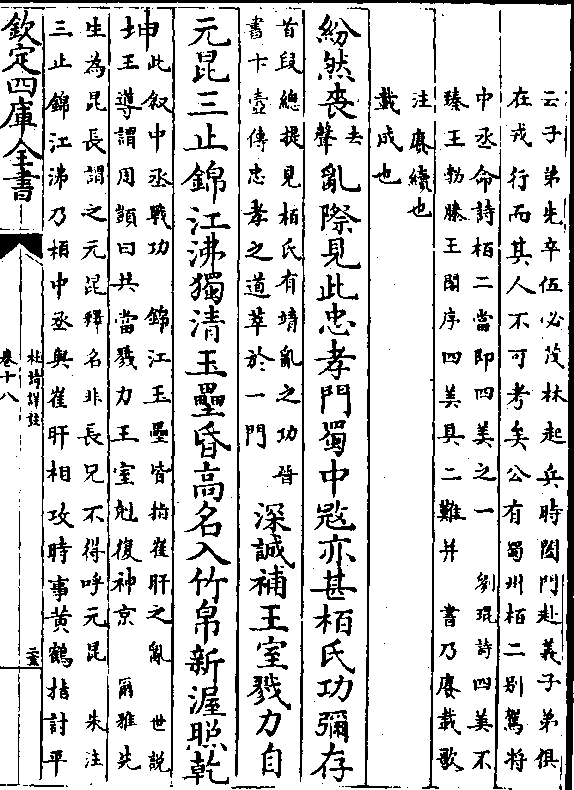 云子弟先卒伍必茂林起兵時闔門赴義子弟俱
在戎行而其人不可考矣公有蜀州栢二别駕將
中丞命詩栢二當即四美之一　劉琨詩四美不
臻王勃滕王閣序四美具二難并　書乃賡載歌
注賡續也
載成也
紛然喪去聲亂際見此忠孝門蜀中㓂亦甚栢氏功彌存
首段總提見栢氏有靖亂之功　晉
書卞壼傳忠孝之道萃於一門
深誠補王室戮力自
元昆三止錦江沸獨清玉壘昏高名入竹帛新渥照乾
坤
此叙中丞戰功　錦江玉壘皆指崔旰之亂　世説
王導謂周顗曰共當戮力王室尅復神京　爾雅先
生為昆長謂之元昆釋名非長兄不得呼元昆　朱注
三止錦江沸乃栢中丞與崔旰相攻時事黄鶴指討平
欽定四庫全書
杜詩詳註
卷十八